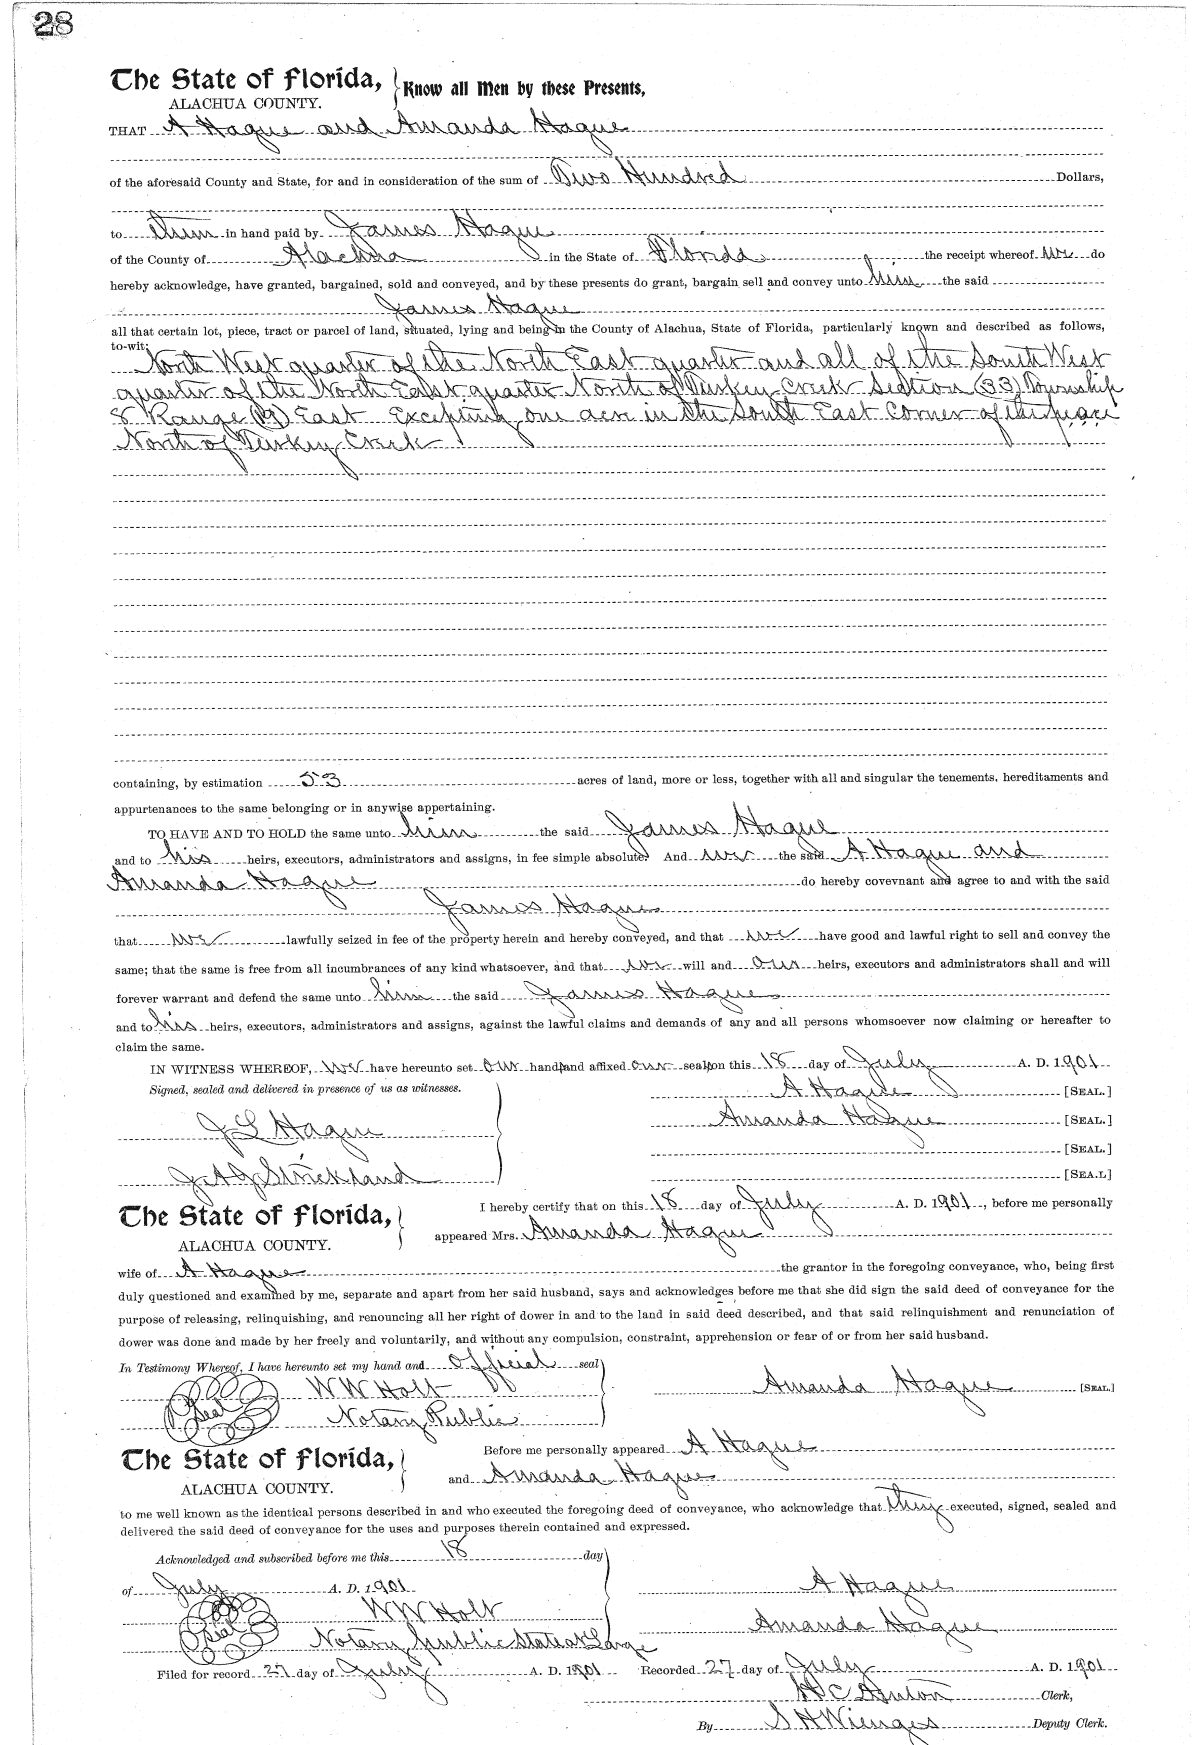 28
The State of Florida, Know all Men by these Presents,
ALACHUA COUNTY.
THAT A Hague and Amanda Hague
of the aforesaid County and State, for and in consideration of the sum of Two Hundred Dollars,
to them in hand paid by James Hague
of the County of Alachua in the State of Florida the receipt whereof we do
hereby acknowledge, have granted, bargained, sold and conveyed, and by these presents do grant, bargain sell and convey unto him the said
James Hague
all that certain lot, piece, tract or parcel of land, situated, lying and being in the County of Alachua, State of Florida, particularly known and described as follows,
to-wit:
North West quarter of the North East quarter and all of the South West
quarter of the North East quarter North of Turkey Creek Section (33) Township
8 Range (19) East Excepting one acre in the South East Corner of the
North of Turkey Creek
containing, by estimation 53 acres of land, more or less, together with all and singular the tenements, hereditaments and
appurtenances to the same belonging or in anywise appertaining.
TO HAVE AND TO HOLD the same unto him the said James Hague
and to his heirs, executors, administrators and assigns, in fee simple absolute. And we the said A Hague and
Amanda Hague do hereby covevnant and agree to and with the said
James Hague
that we lawfully seized in fee of the property herein and hereby conveyed, and that we have good and lawful right to sell and convey the
same; that the same is free from all incumbrances of any kind whatsoever, and that we will and our heirs, executors and administrators shall and will
forever warrant and defend the same unto him the said James Hague
and to his heirs, executors, administrators and assigns, against the lawful claims and demands of any and all persons whomsoever now claiming or hereafter to
claim the same.
IN WITNESS WHEREOF, we have hereunto set our hand and affixed our seal on this 18 day of July A. D. 1901
Signed, sealed and delivered in presence of us as witnesses. A Hague [SEAL.]
Amanda Hague [SEAL.]
J L Hague
[SEAL.]
J A J Strickland [SEAL]
The State of Florida, I hereby certify that on this 18 day of July A. D. 1901, before me personally
ALACHUA COUNTY. appeared Mrs. Amanda Hague
wife of A Hague the grantor in the foregoing conveyance, who, being first
duly questioned and examined by me, separate and apart from her said husband, says and acknowledges before me that she did sign the said deed of conveyance for the
purpose of releasing, relinquishing, and renouncing all her right of dower in and to the land in said deed described, and that said relinquishment and renunciation of
dower was done and made by her freely and voluntarily, and without any compulsion, constraint, apprehension or fear of or from her said husband.
In Testimony Whereof, I have hereunto set my hand and official seal
W W Holt Amanda Hague [SEAL.]
Seal Notary Public
The State of Florida, Before me personally appeared A Hague
ALACHUA COUNTY. and Amanda Hague
to me well known as the identical persons described in and who executed the foregoing deed of conveyance, who acknowledge that they executed, signed, sealed and
delivered the said deed of conveyance for the uses and purposes therein contained and expressed.
Acknowledged and subscribed before me this 18 day
of July A. D. 1901 A Hague
W W Holt
Amanda Hague
Seal Notary public State at Large
Filed for record 27 day of July A. D. 1901 Recorded 27 day of July A. D. 1901
H C Denton Clerk,
By S H Wienges Deputy Clerk.